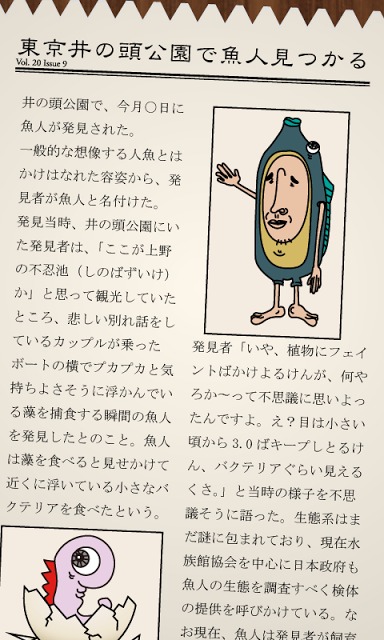 東京井の頭公園で魚人見つかる
Vol. 20 Issue 9
井の頭公園で、今月〇日に
魚人が発見された。
一般的な想像する人魚とは
かけはなれた容姿から、発
見者が魚人と名付けた。
発見当時、井の頭公園にい
た発見者は、「ここが上野
の不忍池（しのばずいけ）
か」と思って観光していた
ところ、悲しい別れ話をし
ているカップルが乗った
ボートの横でプカプカと気
持ちよさそうに浮かんでい
る藻を捕食する瞬間の魚人
を発見したとのこと。魚人
は藻を食べると見せかけて
近くに浮いている小さなバ
クテリアを食べたという。
発見者「いや、植物にフェイ
ントばかけよるけんが、何や
ろか〜って不思議に思いよっ
たんですよ。え？目は小さい
頃から 3.0 ばキープしとるけ
ん、バクテリアぐらい見える
くさ。」と当時の様子を不思
議そうに語った。生態系はま
だ謎に包まれており、現在水
族館協会を中心に日本政府も
魚人の生態を調査すべく検体
の提供を呼びかけている。な
お現在、魚人は発見者が飼育